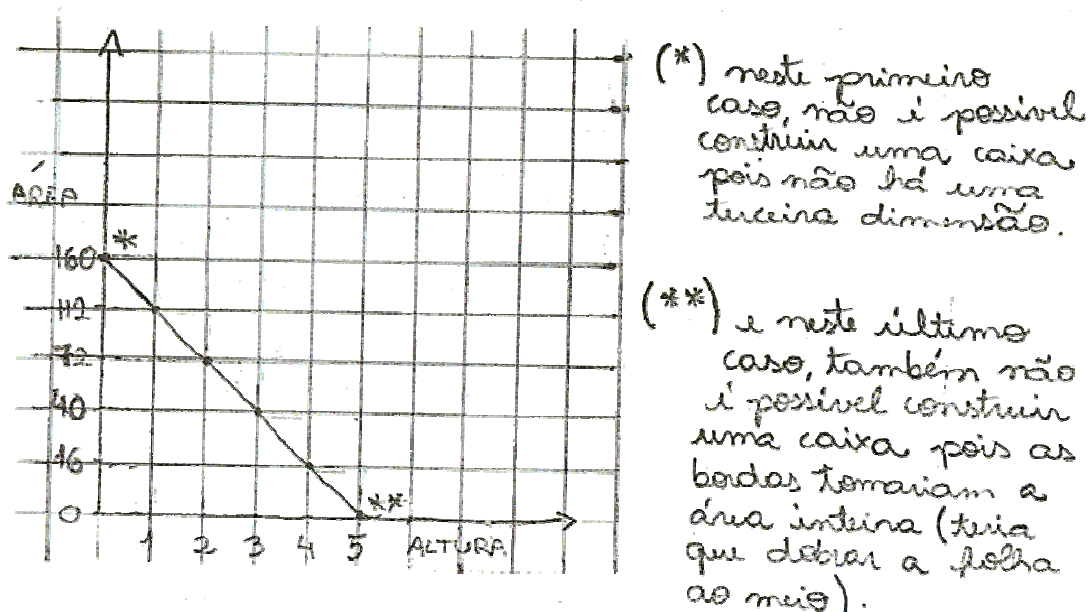 ÁREA
160 *
112
72
40
16
0
**
1 2 3 4 5 ALTURA
(*) neste primeiro
caso, não é possível
construir uma caixa
pois não há uma
terceira dimensão.
(**) e neste último
caso, também não
é possível construir
uma caixa pois as
bordas tomariam a
área inteira (teria
que dobrar a folha
ao meio).